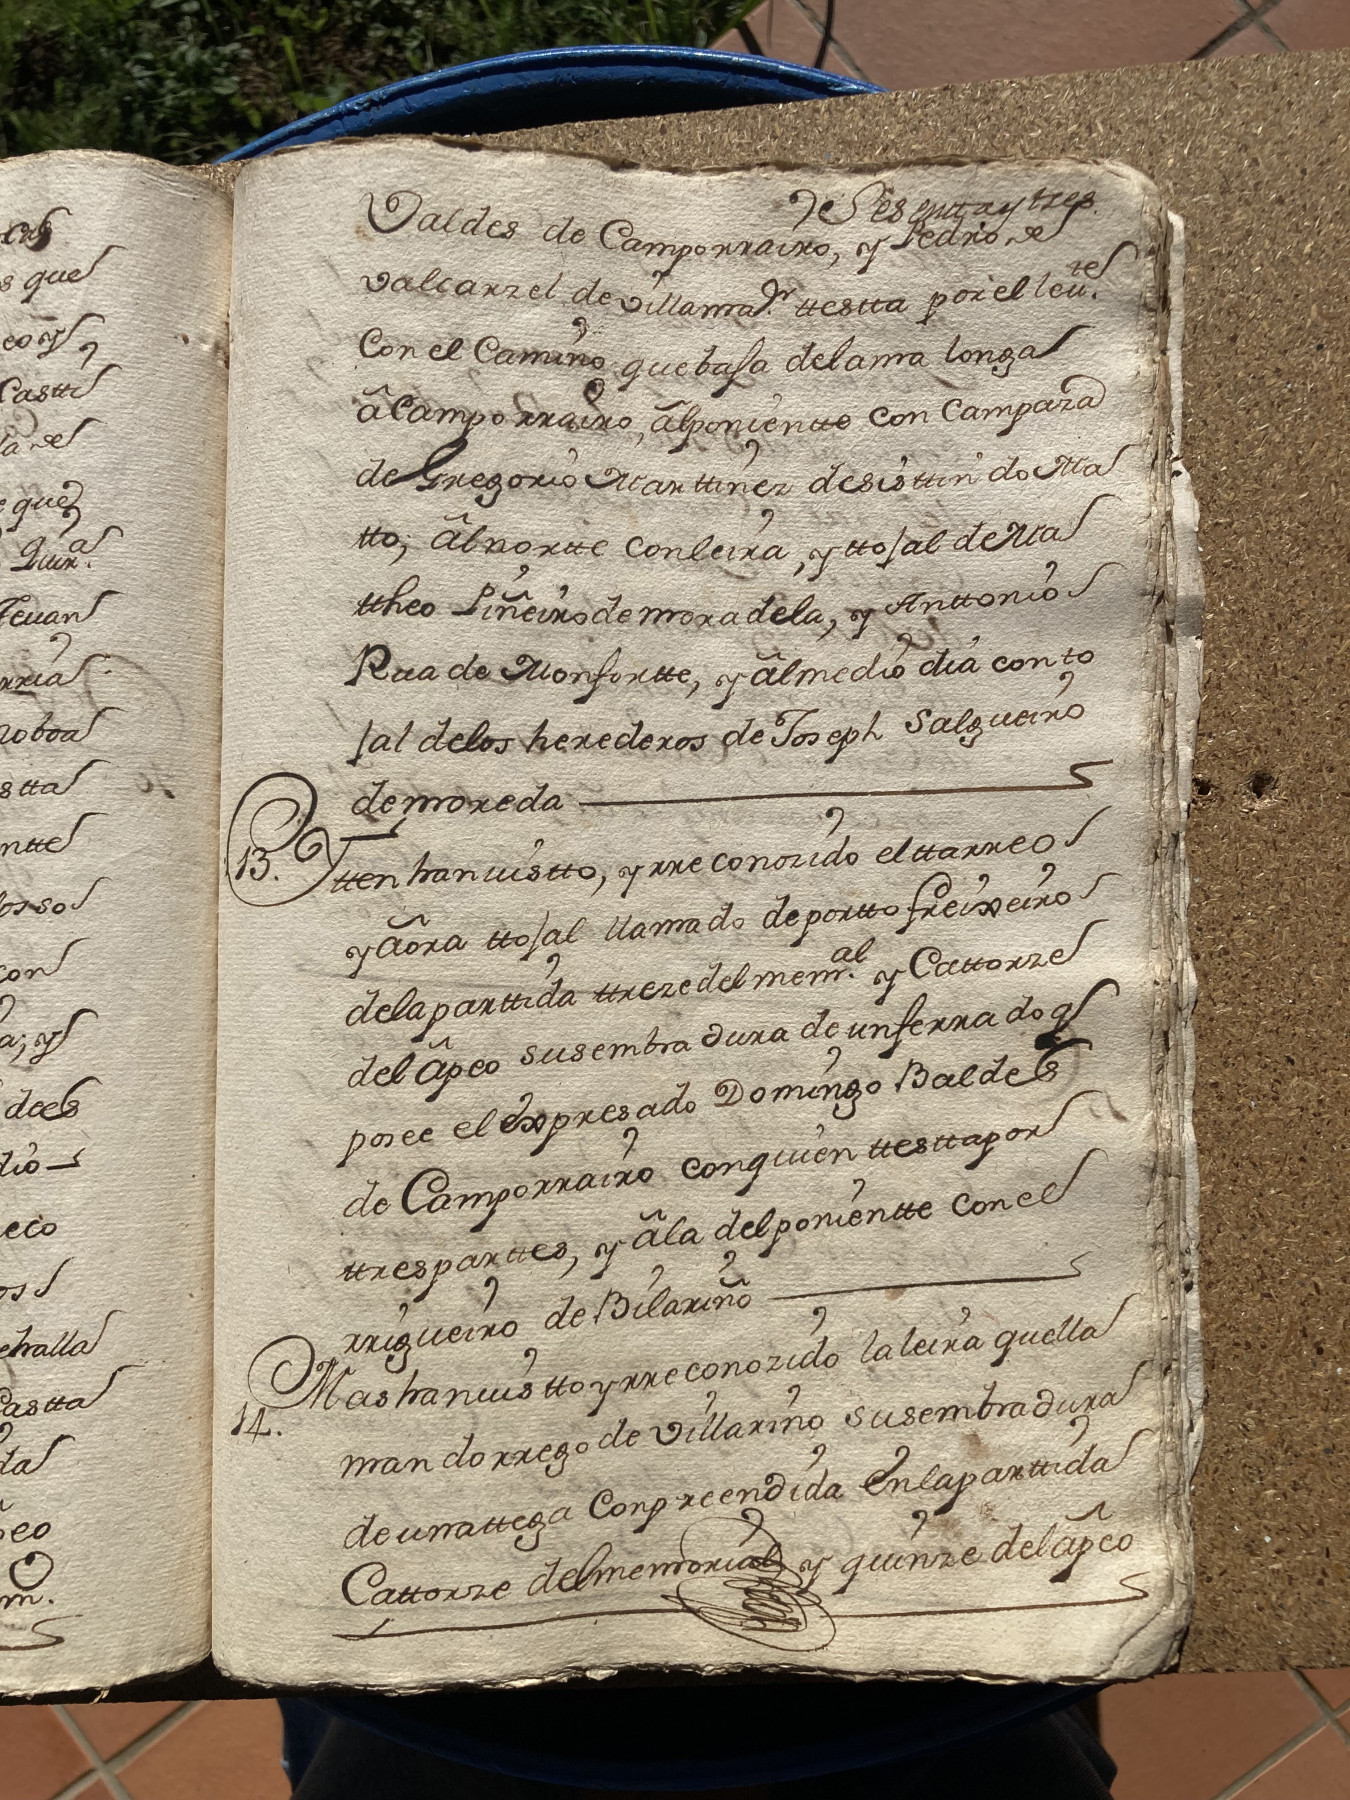 de Sesenttaytres.
Valdes de Camporrairo, y Pedro de
valcarzel de villamaȓ. ttestta por el leu.te
Con el Camino que basa delama longa
â Camporrairo, âlponientte con Campaza
de Gregorio Marttinez desisttindo Ma
tto, âl nortte con leira, y ttosal de Ma
ttheo Piñeiro de moradela, y Anttonio
Rua de Monfortte, y âl medio dia con to
sal delos herederos de Joseph Salgueiro
de moreda
13. Ytten han visto, y rreconozido el ttarreo
y âora ttosal llamado de portto freixeiro
dela parttida ttreze del mem.al y Cattorze
del âpeo su sembradura de un ferrado q
posee el expresado Domingo Baldes
de Camporrairo con quien ttestta por
ttres parttes, y âla del ponientte con el
rrigueiro de Bilariño
14. Mas han vistto y rreconozido la leira que lla
man do rrego de Villarino su sembradura
de una ttega Conpreendida en la parttida
Cattorze del memorial y quinze del âpeo
cas
s que
eo y
Castti
la de
e que
Quir.a
Tevan
rria
noboa
stta
ntte
losso
con
a; y
de es
dio
eco
os
ehalla
Castta
da
peo
m.